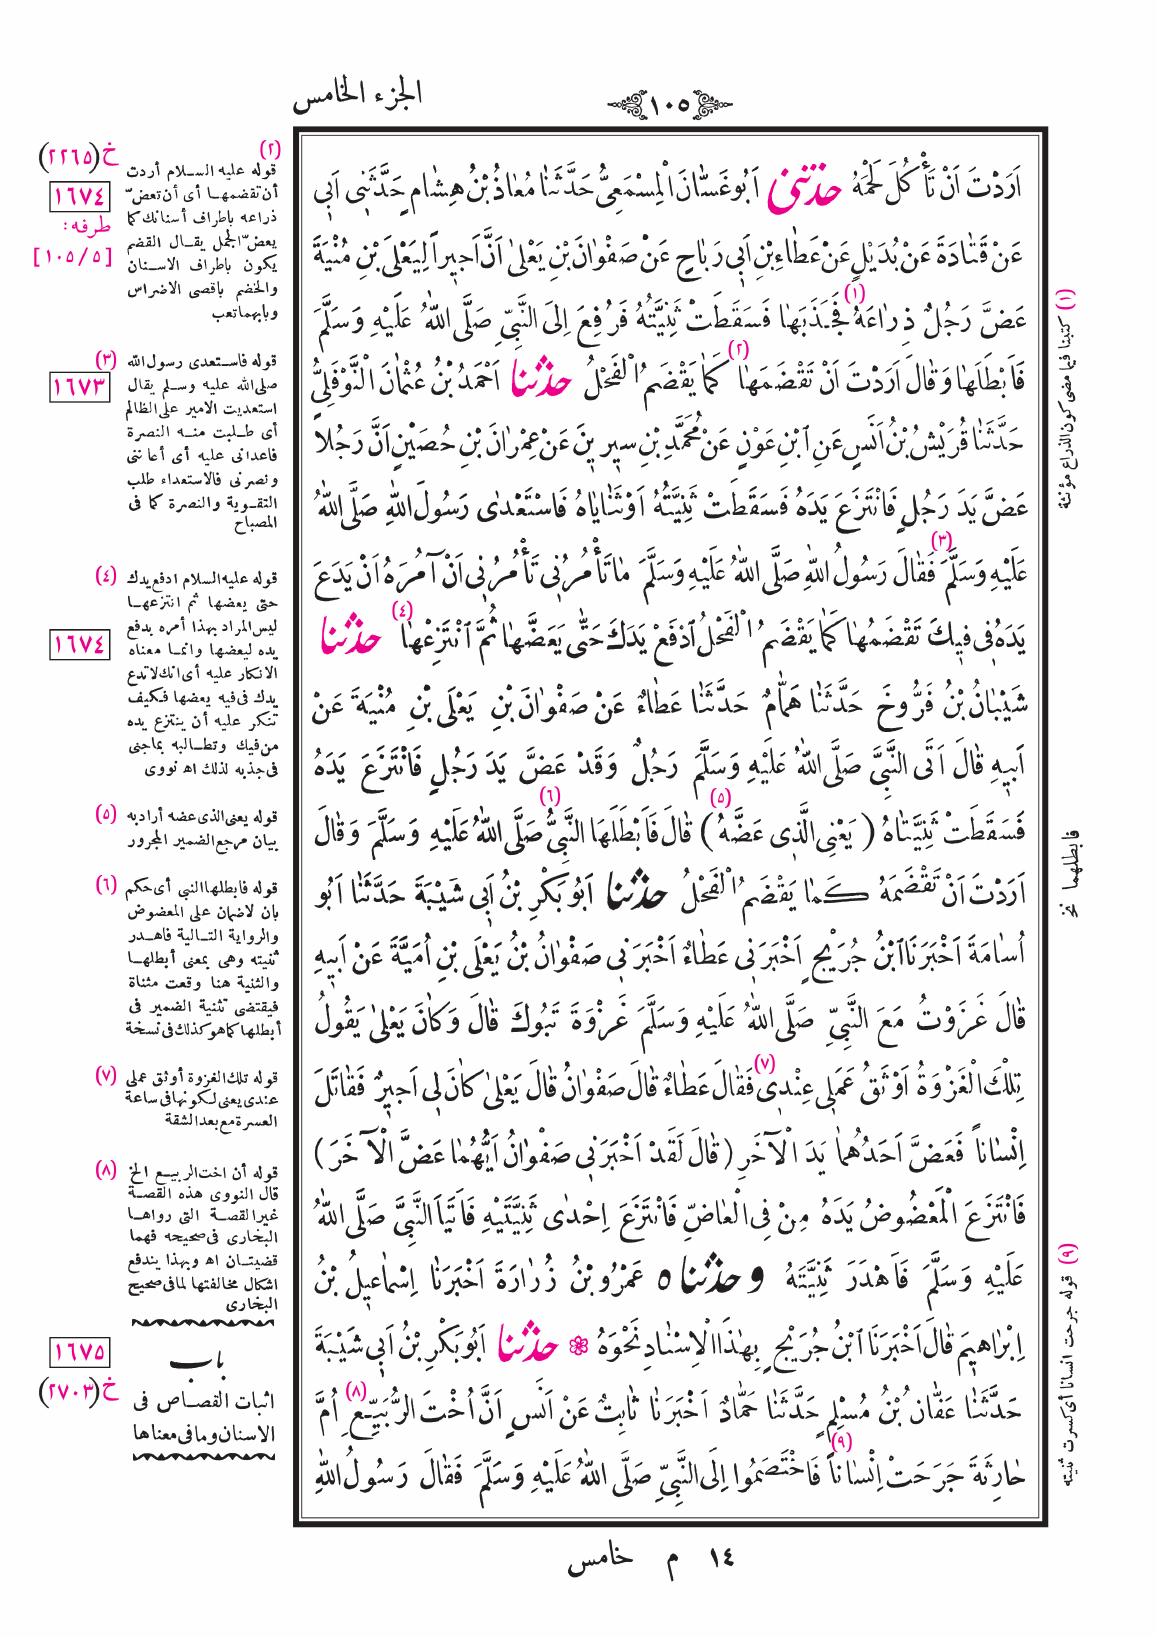 ١٠٥
الجزء الخامس
اَرَدْتَ اَنْ تَأْكُلَ لَحْمَهُ حَدَّثَنِي اَبُوغَسَّانَ الْمِسْمَعِيُّ حَدَّثَنَا مُعَاذُ بْنُ هِشَامٍ حَدَّثَنِي اَبِي
عَنْ قَتَادَةَ عَنْ بُدَيْلٍ عَنْ عَطَاءِ بْنِ اَبِي رَبَاحٍ عَنْ صَفْوَانَ بْنِ يَعْلَى اَنَّ اَجِيراً لِيَعْلَى بْنِ مُنْيَةَ
عَضَّ رَجُلٌ ذِرَاعَهُ (١) فَجَذَبَهَا فَسَقَطَتْ ثَنِيَّتُهُ فَرُفِعَ اِلَى النَّبِيِّ صَلَّى اللهُ عَلَيْهِ وَسَلَّمَ
فَاَبْطَلَهَا وَقَالَ اَرَدْتَ اَنْ تَقْضَمَهَا (٢) كَمَا يَقْضَمُ الْفَحْلُ حَدَّثَنَا اَحْمَدُ بْنُ عُثْمَانَ النَّوْفَلِيُّ
حَدَّثَنَا قُرَيْشُ بْنُ اَنَسٍ عَنِ ابْنِ عَوْنٍ عَنْ مُحَمَّدِ بْنِ سِيرِينَ عَنْ عِمْرَانَ بْنِ حُصَيْنٍ اَنَّ رَجُلاً
عَضَّ يَدَ رَجُلٍ فَانْتَزَعَ يَدَهُ فَسَقَطَتْ ثَنِيَّتُهُ اَوْ ثَنَايَاهُ فَاسْتَعْدَى رَسُولَ اللهِ صَلَّى اللهُ
عَلَيْهِ وَسَلَّمَ (٣) فَقَالَ رَسُولُ اللهِ صَلَّى اللهُ عَلَيْهِ وَسَلَّمَ مَا تَأْمُرُنِي تَأْمُرُنِي اَنْ آمُرَهُ اَنْ يَدَعَ
يَدَهُ فِي فِيكَ تَقْضَمُهَا كَمَا يَقْضَمُ الْفَحْلُ اِدْفَعْ يَدَكَ حَتَّى يَعَضَّهَا ثُمَّ انْتَزِعْهَا (٤) حَدَّثَنَا
شَيْبَانُ بْنُ فَرُّوخَ حَدَّثَنَا هَمَّامٌ حَدَّثَنَا عَطَاءٌ عَنْ صَفْوَانَ بْنِ يَعْلَى بْنِ مُنْيَةَ عَنْ
اَبِيهِ قَالَ اَتَى النَّبِيَّ صَلَّى اللهُ عَلَيْهِ وَسَلَّمَ رَجُلٌ وَقَدْ عَضَّ يَدَ رَجُلٍ فَانْتَزَعَ يَدَهُ
فَسَقَطَتْ ثَنِيَّتَاهُ (يَعْنِي الَّذِي عَضَّهُ) (٥) قَالَ فَاَبْطَلَهَا النَّبِيُّ (٦) صَلَّى اللهُ عَلَيْهِ وَسَلَّمَ وَقَالَ
اَرَدْتَ اَنْ تَقْضَمَهُ كَمَا يَقْضَمُ الْفَحْلُ حَدَّثَنَا اَبُو بَكْرِ بْنُ اَبِي شَيْبَةَ حَدَّثَنَا اَبُو
اُسَامَةَ اَخْبَرَنَا ابْنُ جُرَيْجٍ اَخْبَرَنِي عَطَاءٌ اَخْبَرَنِي صَفْوَانُ بْنُ يَعْلَى بْنِ اُمَيَّةَ عَنْ اَبِيهِ
قَالَ غَزَوْتُ مَعَ النَّبِيِّ صَلَّى اللهُ عَلَيْهِ وَسَلَّمَ غَزْوَةَ تَبُوكَ قَالَ وَكَانَ يَعْلَى يَقُولُ
تِلْكَ الْغَزْوَةُ اَوْثَقُ عَمَلِي عِنْدِي (٧) فَقَالَ عَطَاءٌ قَالَ صَفْوَانُ قَالَ يَعْلَى كَانَ لِي اَجِيرٌ فَقَاتَلَ
اِنْسَاناً فَعَضَّ اَحَدُهُمَا يَدَ الْآخَرِ (قَالَ لَقَدْ اَخْبَرَنِي صَفْوَانُ اَيُّهُمَا عَضَّ الْآخَرَ)
فَانْتَزَعَ الْمَعْضُوضُ يَدَهُ مِنْ فِي الْعَاضِّ فَانْتَزَعَ اِحْدَى ثَنِيَّتَيْهِ فَاَتَيَا النَّبِيَّ صَلَّى اللهُ
عَلَيْهِ وَسَلَّمَ فَاَهْدَرَ ثَنِيَّتَهُ وحَدَّثَنَاه عَمْرُو بْنُ زُرَارَةَ اَخْبَرَنَا اِسْمَاعِيلُ بْنُ
اِبْرَاهِيمَ قَالَ اَخْبَرَنَا ابْنُ جُرَيْجٍ بِهٰذَا الْاِسْنَادِ نَحْوَهُ ❁ حَدَّثَنَا اَبُو بَكْرِ بْنُ اَبِي شَيْبَةَ
حَدَّثَنَا عَفَّانُ بْنُ مُسْلِمٍ حَدَّثَنَا حَمَّادٌ اَخْبَرَنَا ثَابِتٌ عَنْ اَنَسٍ اَنَّ اُخْتَ الرُّبَيِّعِ (٨) اُمَّ
حَارِثَةَ جَرَحَتْ اِنْسَاناً (٩) فَاخْتَصَمُوا اِلَى النَّبِيِّ صَلَّى اللهُ عَلَيْهِ وَسَلَّمَ فَقَالَ رَسُولُ اللهِ
(١) كتبنا فيما مضى كون الذراع مؤنثة
فابطلهما نخ
(٩) قوله جرحت انسانا أى كسرت ثنيته
(٢)
قوله عليه السلام أردت
أن تقضمها أى أن تعضّ
ذراعه باطراف أسنانك كما
يعضّ الجمل يقال القضم
يكون باطراف الاسنان
والخضم باقصى الاضراس
وبابهما تعب
(٣) قوله فاستعدى رسول الله
صلى الله عليه وسلم يقال
استعديت الامير على الظالم
أى طلبت منه النصرة
فاعدانى عليه أى أعاننى
ونصرنى فالاستعداء طلب
التقوية والنصرة كما فى
المصباح
(٤) قوله عليه السلام ادفع يدك
حتى يعضها ثم انتزعها
ليس المراد بهذا أمره بدفع
يده ليعضها وانما معناه
الانكار عليه أى انك لاتدع
يدك فى فيه يعضها فكيف
تنكر عليه أن ينتزع يده
من فيك وتطالبه بما جنى
فى جذبه لذلك اه نووى
(٥) قوله يعنى الذى عضه أراد به
بيان مرجع الضمير المجرور
(٦) قوله فابطلها النبى أى حكم
بان لاضمان على المعضوض
والرواية التالية فاهدر
ثنيته وهى بمعنى أبطلها
والثنية هنا وقعت مثناة
فيقتضى تثنية الضمير فى
أبطلها كما هو كذلك فى نسخة
(٧) قوله تلك الغزوة أوثق عملى
عندى يعنى لكونها فى ساعة
العسرة مع بعد الشقة
(٨) قوله أن اخت الربيع الخ
قال النووى هذه القصة
غير القصة التى رواها
البخارى فى صحيحه فهما
قضيتان اه وبهذا يندفع
اشكال مخالفتها لما فى صحيح
البخارى
باب
اثبات القصاص فى
الاسنان وما فى معناها
خ (٢٢٦٥)
١٦٧٤
طرفه:
[١٠٥/٥]
١٦٧٣
١٦٧٤
١٦٧٥
خ (٢٧٠٣)
١٤ م خامس